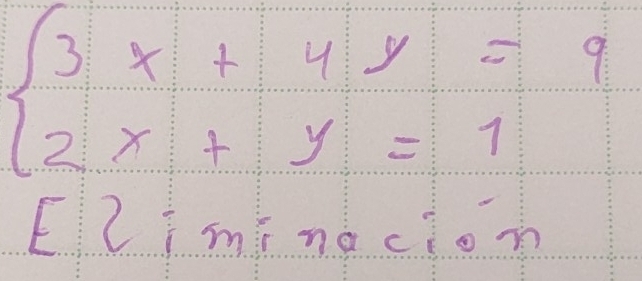 3x + 4y = 9
2x + y = 1
Eliminación